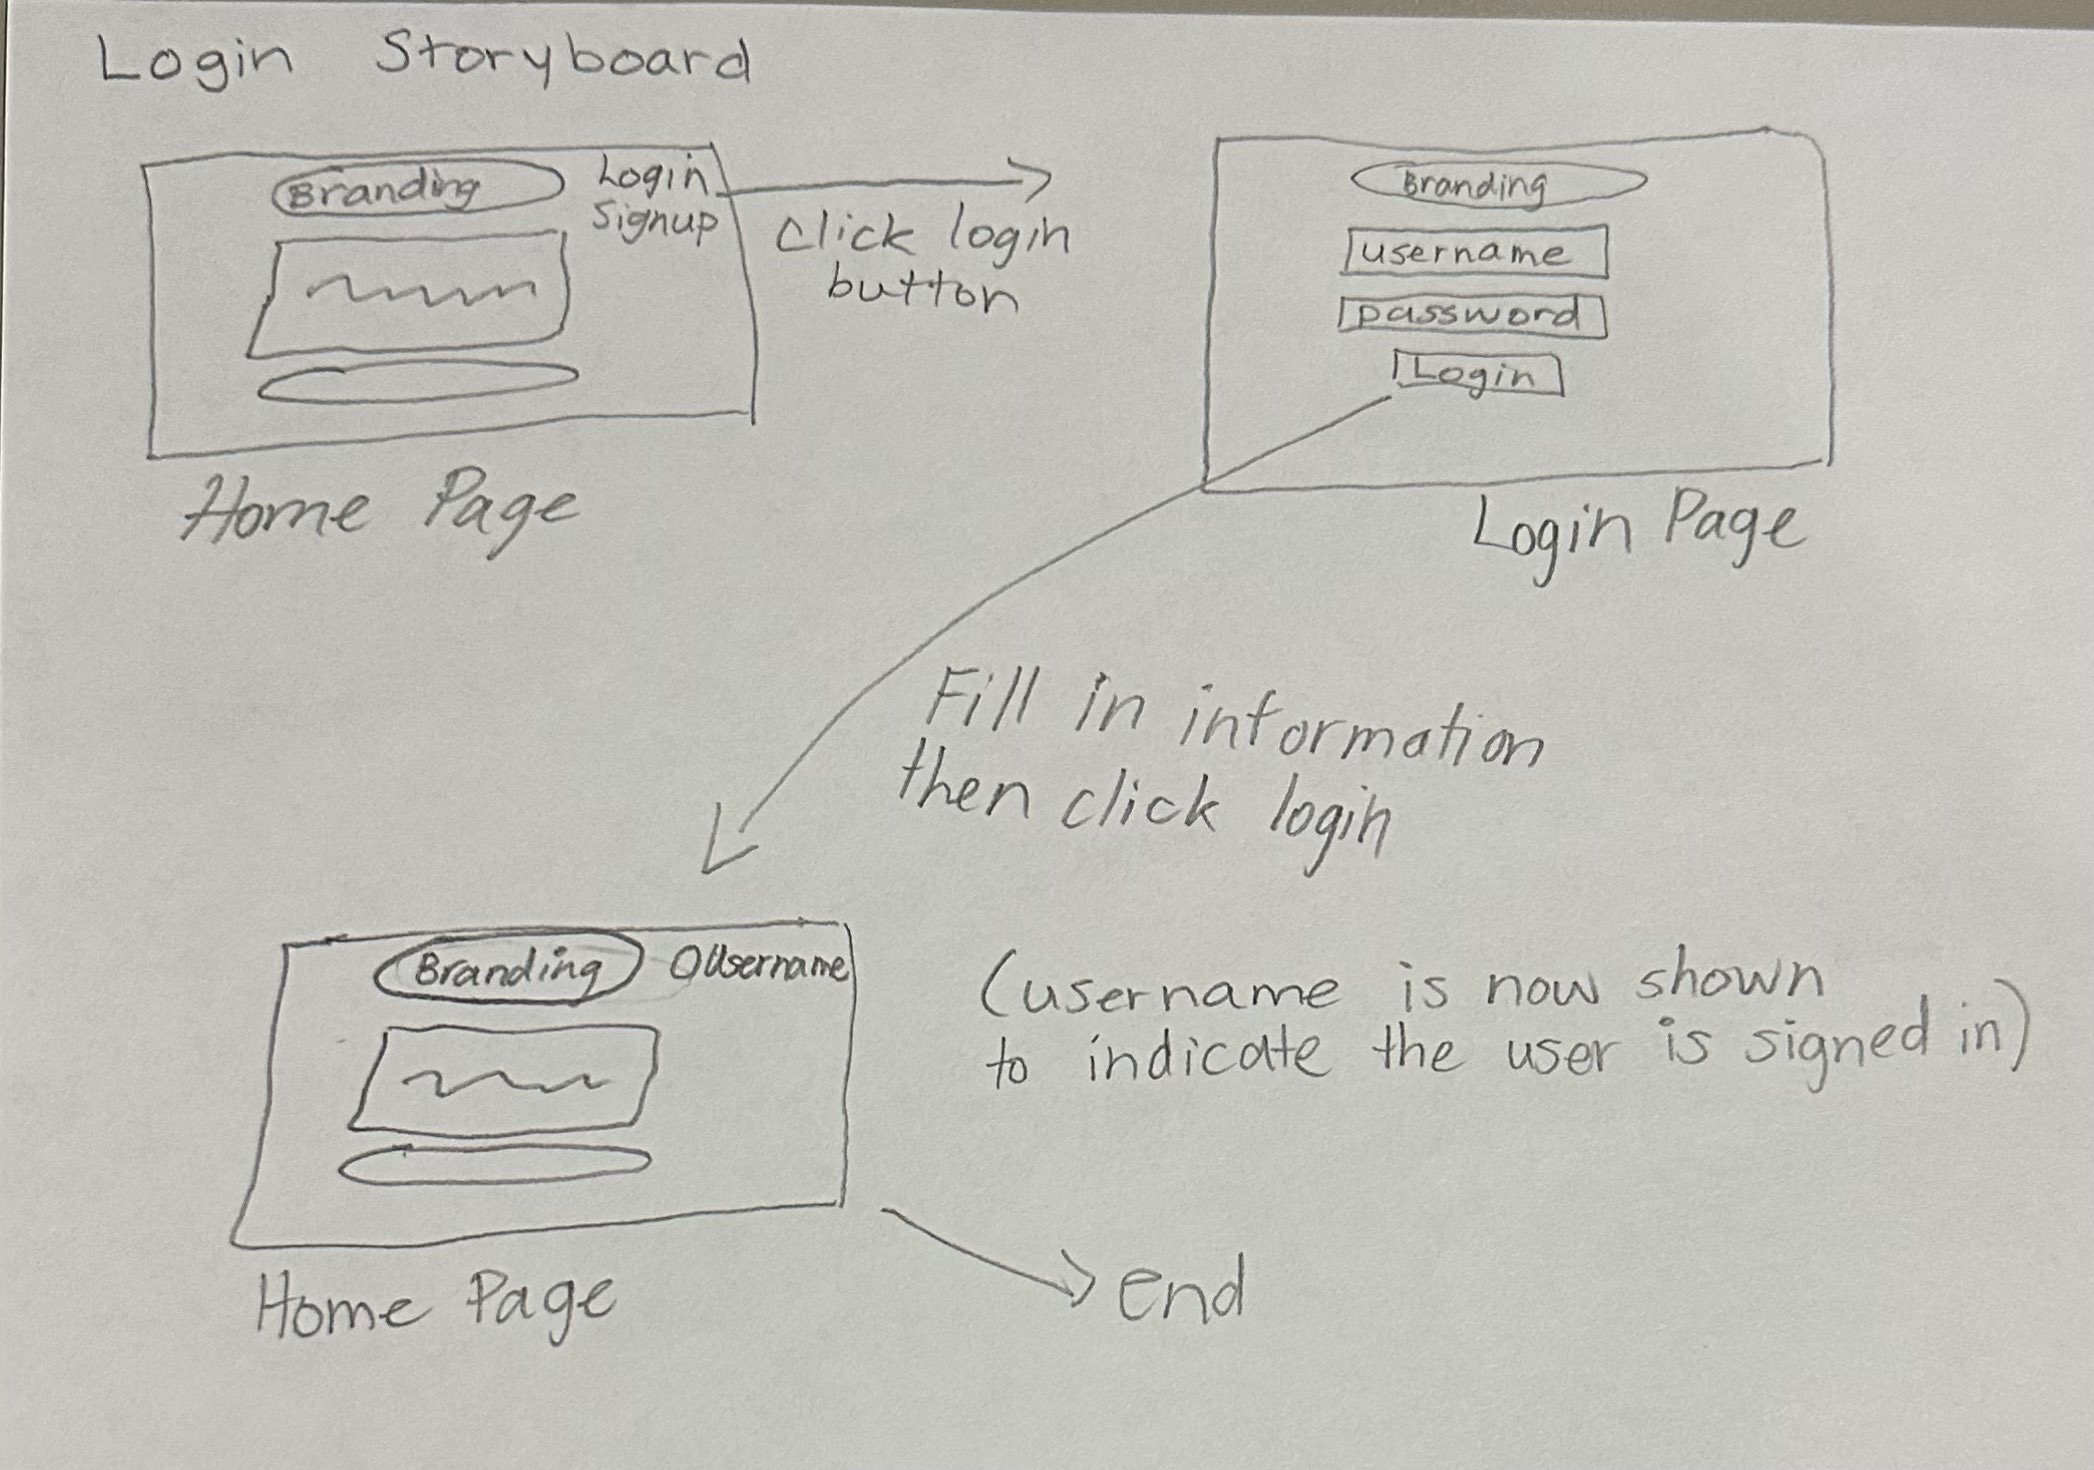 Login Storyboard
Branding
Login
Signup
click login
button
Home Page
Branding
username
password
Login
Login Page
Fill in information
then click login
Branding
Username
(username is now shown
to indicate the user is signed in)
Home Page
end